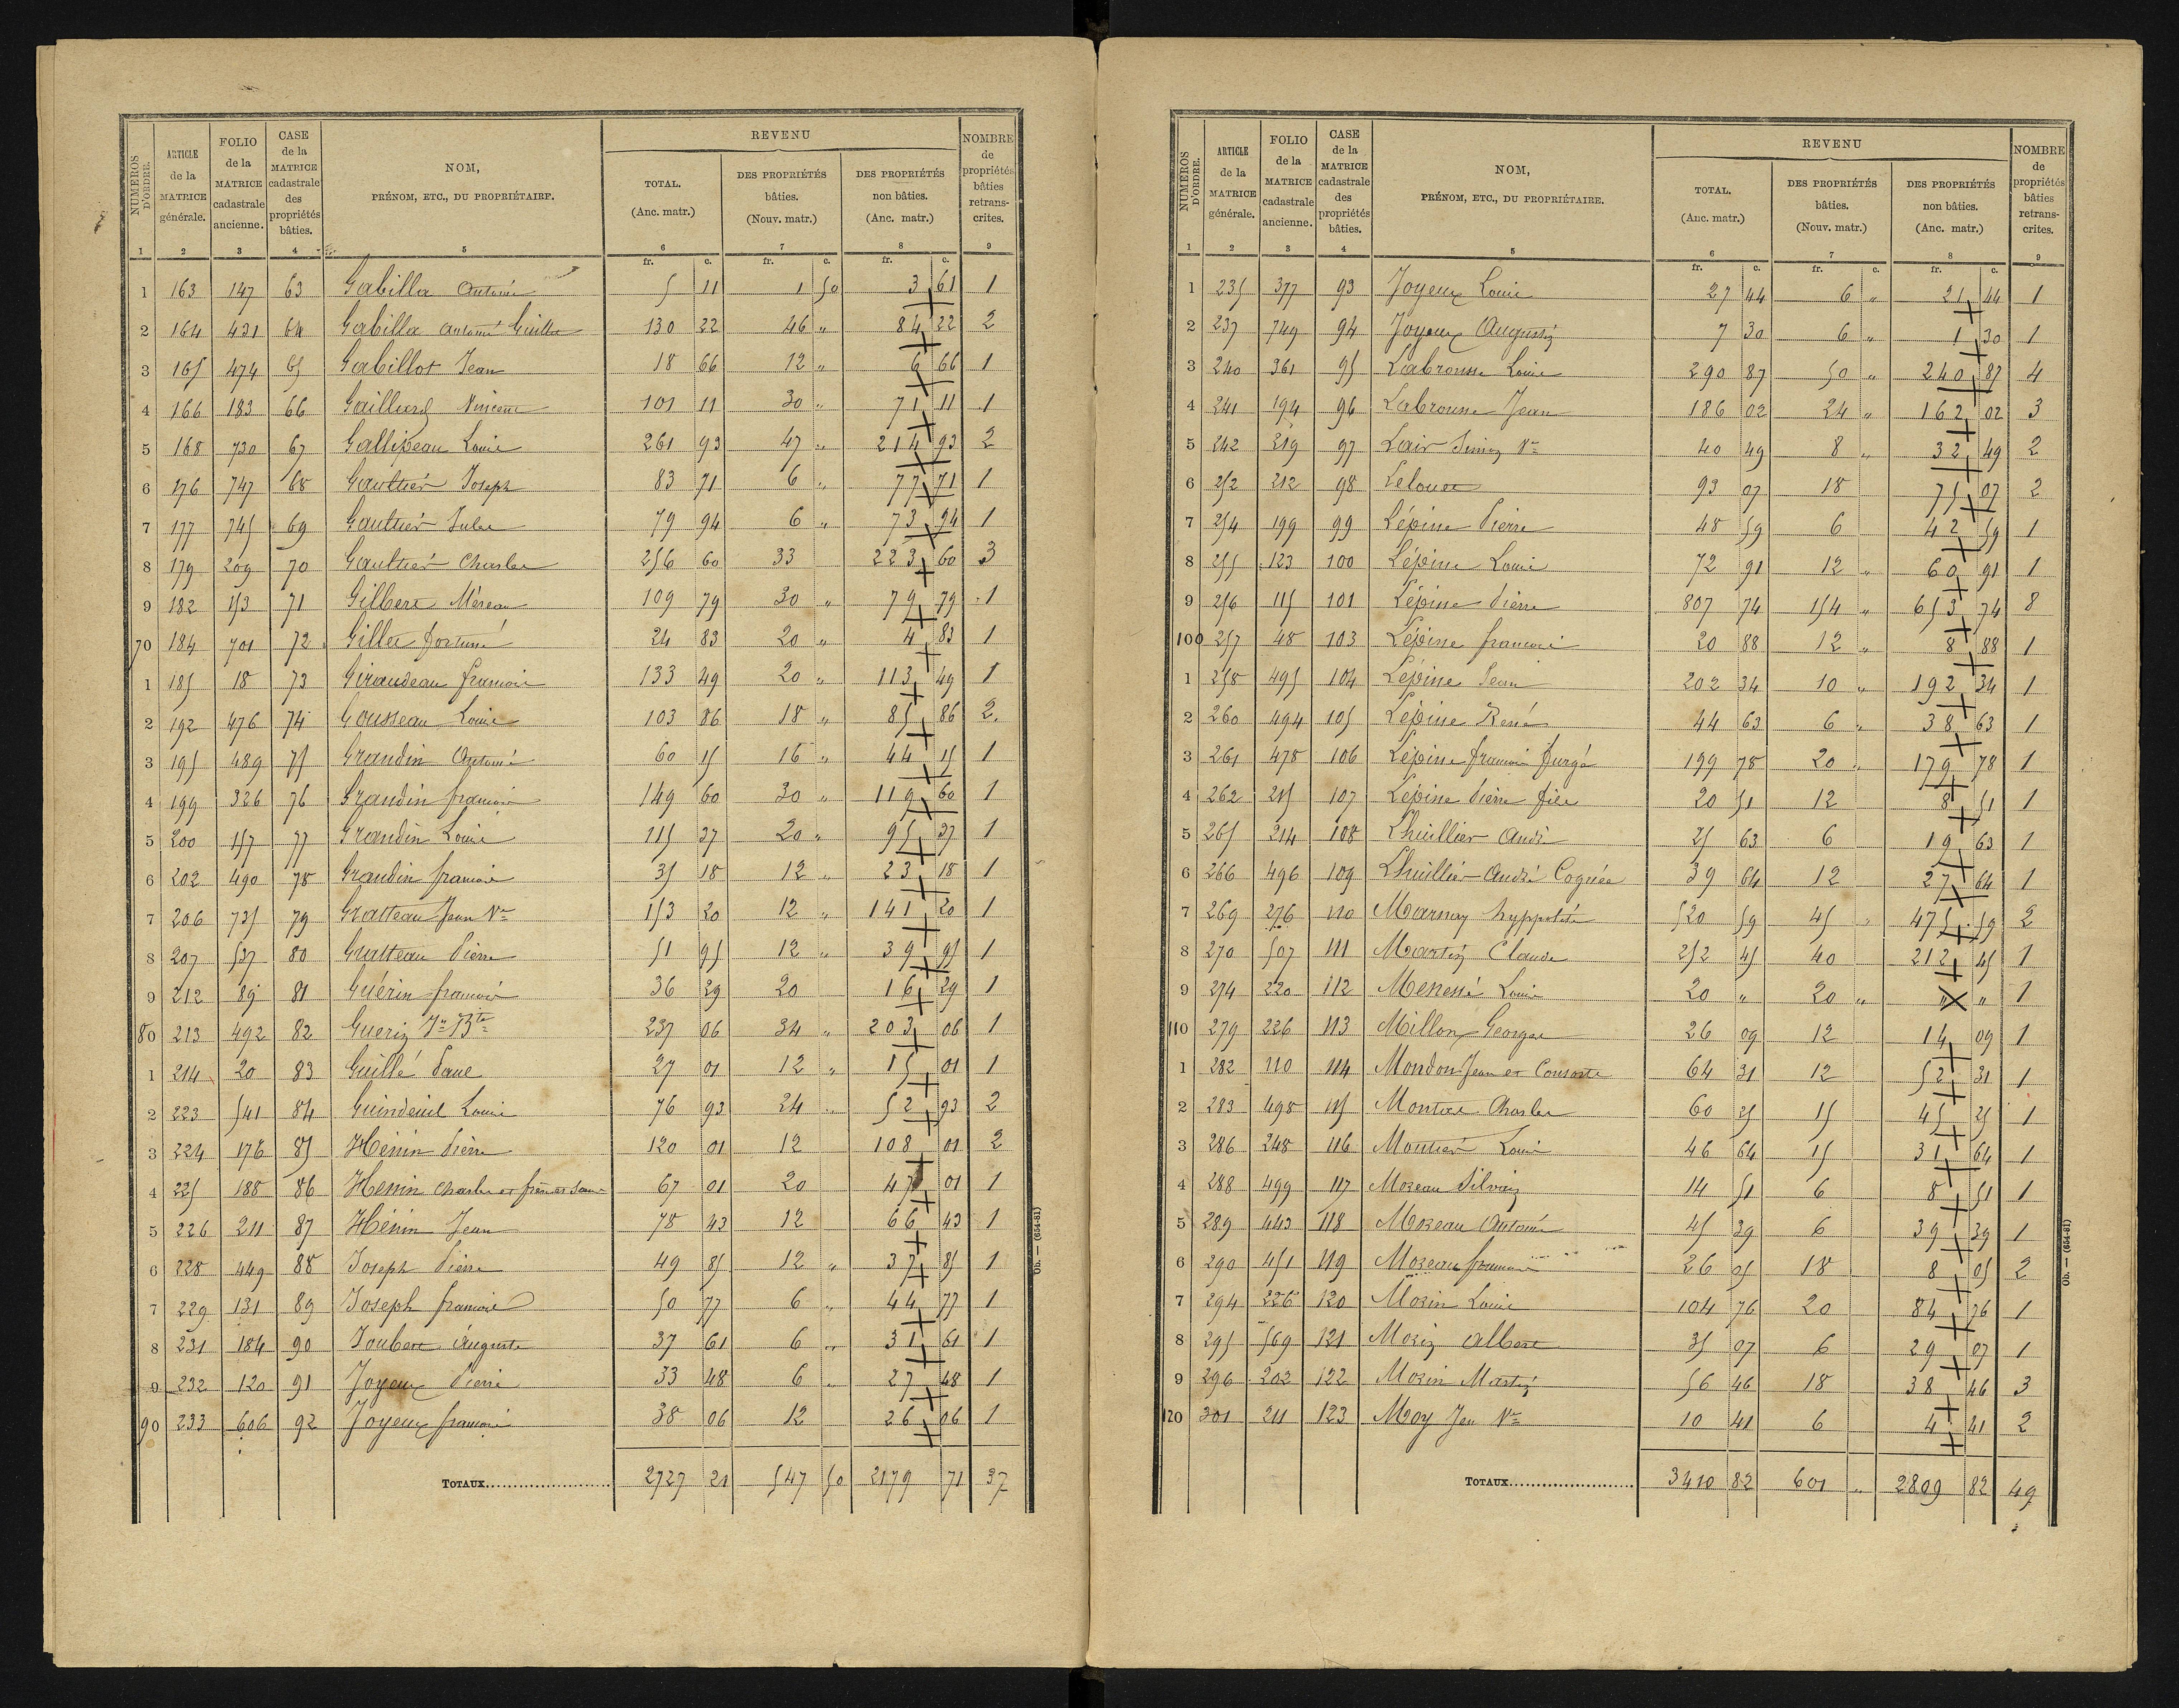 NUMÉROS D'ORDRE. | ARTICLE de la MATRICE générale. | FOLIO de la MATRICE cadastrale ancienne. | CASE de la MATRICE cadastrale des propriétés bâties. | NOM, PRÉNOM, ETC., DU PROPRIÉTAIRE. | REVENU | NOMBRE de propriétés bâties retrans-crites.
TOTAL. (Anc. matr.) | DES PROPRIÉTÉS bâties. (Nouv. matr.) | DES PROPRIÉTÉS non bâties. (Anc. matr.)
1 2 3 4 5 6 7 8 9
fr. c. fr. c. fr. c.
1 163 147 63 Gabilla Antoine 5 11 1 50 3 61 1
2 164 431 64 Gabilla Antoine Guille 130 22 46 " 84 22 2
3 165 474 65 Gabillot Jean 18 66 12 " 6 66 1
4 166 183 66 Gaillard Vincent 101 11 30 " 71 11 1
5 168 730 67 Gallipeau Louis 261 93 47 " 214 93 2
6 176 747 68 Gaultier Joseph 83 71 6 " 77 71 1
7 177 745 69 Gaultier Jules 79 94 6 " 73 94 1
8 179 209 70 Gaultier Charles 256 60 33 223 60 3
9 182 153 71 Gilbert Méreau 109 79 30 " 79 79 1
70 184 701 72 Gilles fortuné 24 83 20 " 4 83 1
1 185 18 73 Giraudeau françois 133 49 20 " 113 49 1
2 192 476 74 Gousseau Louis 103 86 18 " 85 86 2
3 195 489 75 Grandin Antoine 60 15 16 " 44 15 1
4 199 326 76 Grandin françois 149 60 30 " 119 60 1
5 200 157 77 Grandin Louis 115 37 20 " 95 37 1
6 202 490 78 Grandin françois 35 18 12 " 23 18 1
7 206 735 79 Gratteau Jean Vve 153 20 12 " 141 20 1
8 207 537 80 Gratteau Pierre 51 95 12 " 39 95 1
9 212 89 81 Guérin françois 36 29 20 16 29 1
80 213 492 82 Guerin Jn Bte 237 06 34 " 203 06 1
1 214 20 83 Guillé Paul 27 01 12 " 15 01 1
2 223 541 84 Guindeuil Louis 76 93 24 " 52 93 2
3 224 176 85 Hénin Pierre 120 01 12 108 01 2
4 225 188 86 Hénin Charles et frères et soeur 67 01 20 47 01 1
5 226 211 87 Hénin Jean 78 43 12 66 43 1
6 228 449 88 Joseph Pierre 49 85 12 " 37 85 1
7 229 131 89 Joseph françois 50 77 6 " 44 77 1
8 231 184 90 Joubert Auguste 37 61 6 " 31 61 1
9 232 120 91 Joyeux Pierre 33 48 6 " 27 48 1
90 233 606 92 Joyeux françois 38 06 12 26 06 1
TOTAUX 2727 21 547 50 2179 71 37
Ob. — (654-81)
NUMÉROS D'ORDRE. | ARTICLE de la MATRICE générale. | FOLIO de la MATRICE cadastrale ancienne. | CASE de la MATRICE cadastrale des propriétés bâties. | NOM, PRÉNOM, ETC., DU PROPRIÉTAIRE. | REVENU | NOMBRE de propriétés bâties retrans-crites.
TOTAL. (Anc. matr.) | DES PROPRIÉTÉS bâties. (Nouv. matr.) | DES PROPRIÉTÉS non bâties. (Anc. matr.)
1 2 3 4 5 6 7 8 9
fr. c. fr. c. fr. c.
1 235 377 93 Joyeux Louis 27 44 6 " 21 44 1
2 237 749 94 Joyeux Augustin 7 30 6 " 1 30 1
3 240 361 95 Labrousse Louis 290 87 50 " 240 87 4
4 241 194 96 Labrousse Jean 186 02 24 " 162 02 3
5 242 219 97 Lair Simon Vve 40 49 8 " 32 49 2
6 252 212 98 Lelouet 93 07 18 75 07 2
7 254 199 99 Lépine Pierre 48 59 6 42 59 1
8 255 123 100 Lépine Louis 72 91 12 " 60 91 1
9 256 115 101 Lépine Pierre 807 74 154 " 653 74 8
100 257 48 103 Lépine françois 20 88 12 " 8 88 1
1 258 495 104 Lépine Jean 202 34 10 " 192 34 1
2 260 494 105 Lépine René 44 63 6 " 38 63 1
3 261 478 106 Lépine françois furgé 199 78 20 " 179 78 1
4 262 215 107 Lépine Pierre fils 20 51 12 8 51 1
5 265 214 108 Lhuillier André 25 63 6 19 63 1
6 266 496 109 Lhuillier André Cognée 39 64 12 27 64 1
7 269 276 110 Marnay hyppolite 520 59 45 " 475 59 2
8 270 507 111 Martin Claude 252 45 40 212 45 1
9 274 220 112 Menessé Louis 20 " 20 " " " 1
110 279 226 113 Millon Georges 26 09 12 14 09 1
1 282 110 114 Mondon Jean et Consorts 64 31 12 52 31 1
2 283 498 115 Charles 60 25 15 45 25 1
3 286 248 116 Louis 46 64 15 31 64 1
4 288 499 117 Moreau Silvain 14 51 6 8 51 1
5 289 443 118 Moreau Antoine 45 39 6 39 39 1
6 290 451 119 Moreau françois 26 05 18 8 05 2
7 294 226 120 Morin Louis 104 76 20 84 76 1
8 295 569 121 Morin Albert 35 07 6 29 07 1
9 296 202 122 Morin Martin 56 46 18 38 46 3
120 301 211 123 Moy Jean Vve 10 41 6 4 41 2
TOTAUX 3410 82 601 " 2809 82 49
Ob. — (654-81)